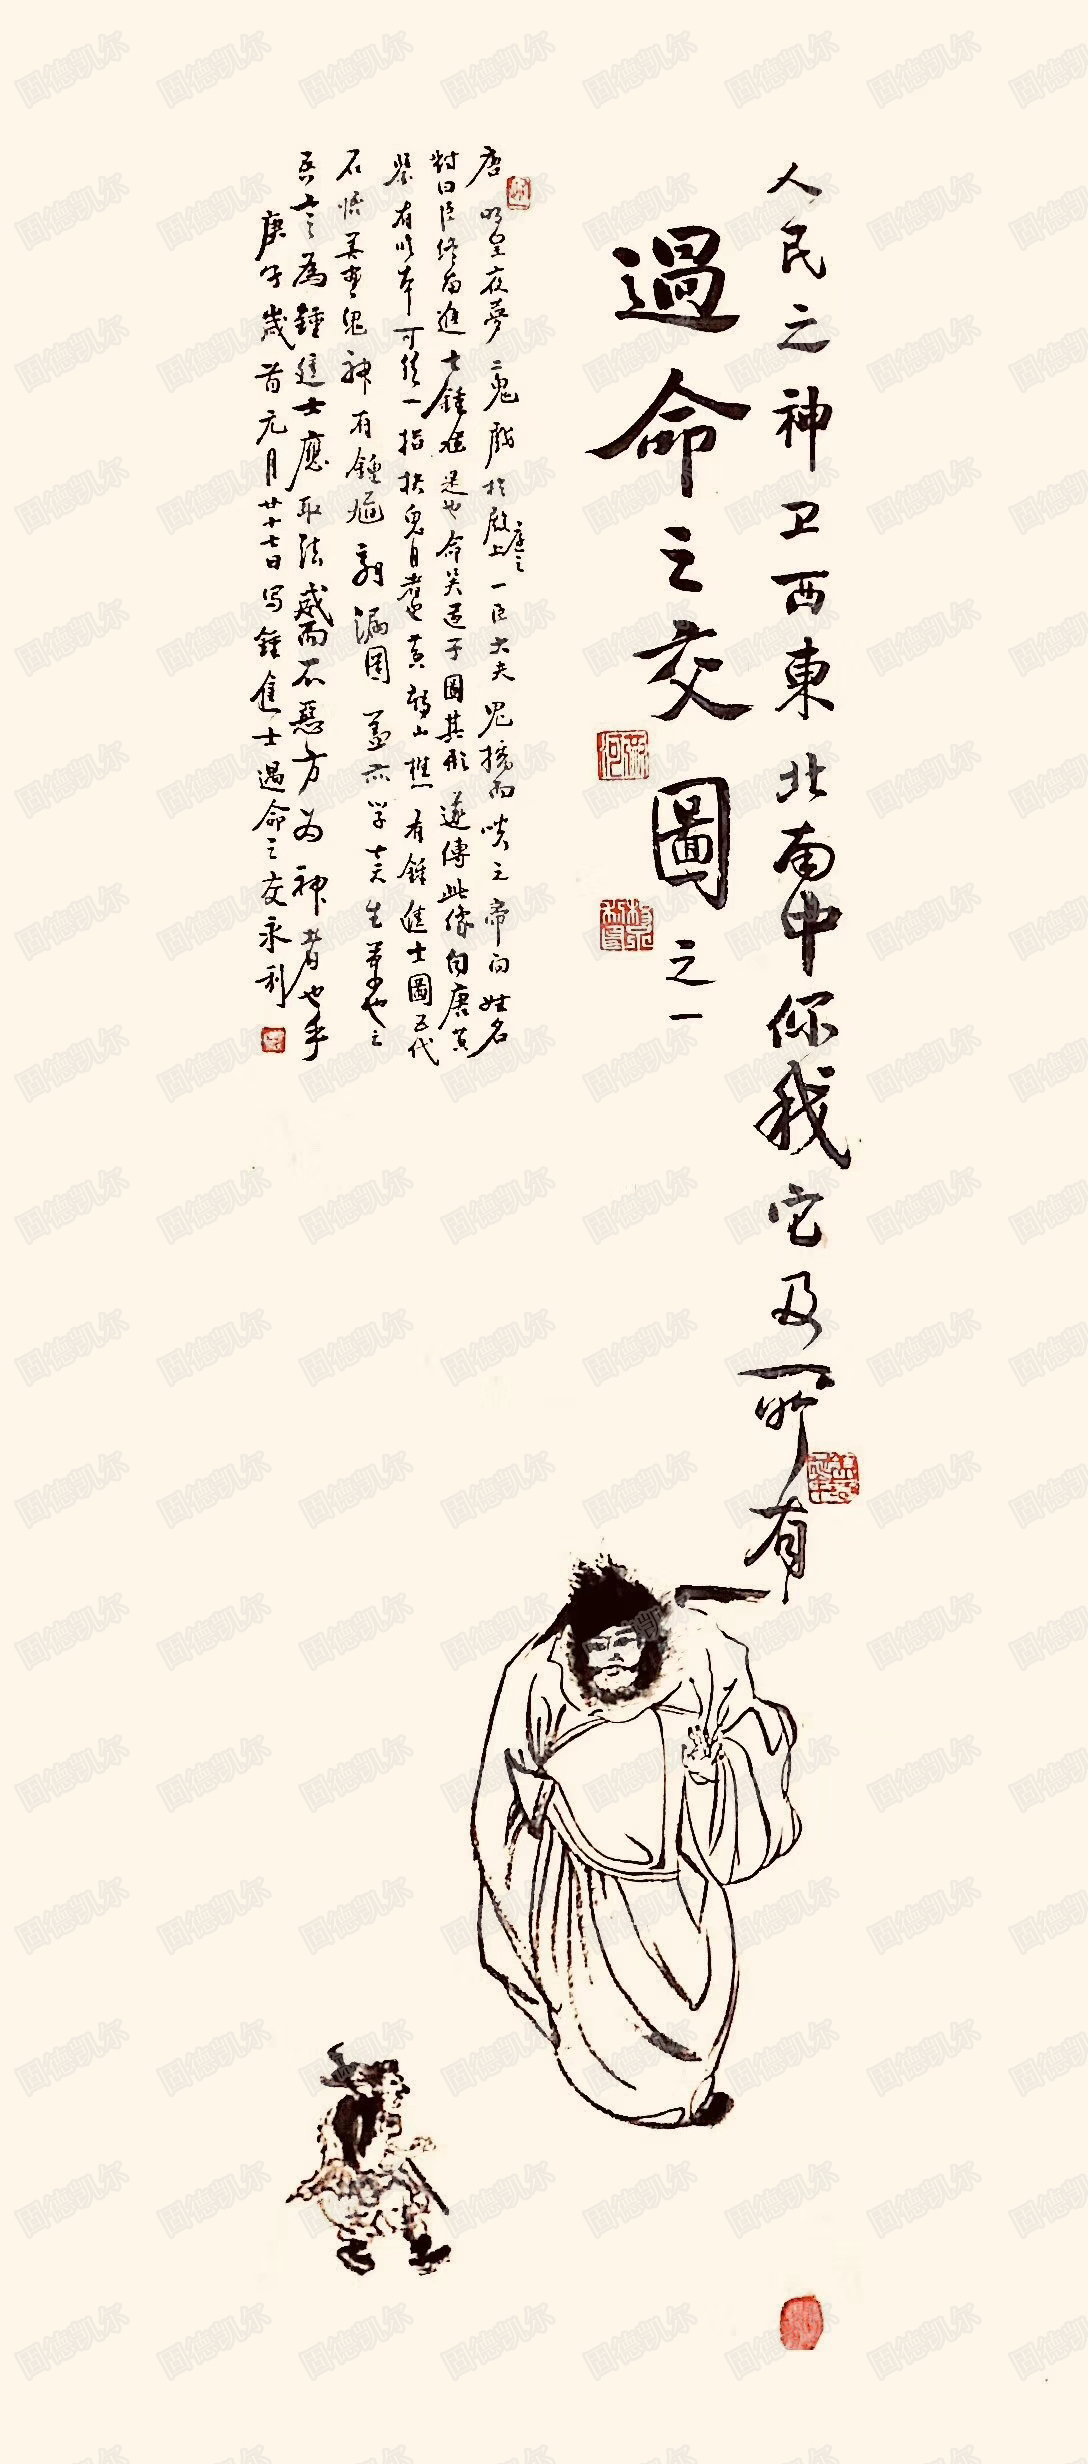 人民之神卫西東北南中你我它及所有
過命之交圖之一
唐明皇夜夢二鬼戲於殿上一臣大夫鬼捉而啖之帝问姓名
對曰臣终南進士鍾馗是也命吴道子圖其形遂傳此像自唐
有可後一指抉鬼目者也黄鶴山樵有鍾進士圖五代
石恪鬼神有鍾馗漏圖盖亦学生笔也
吾言為鍾進士應取法威而不惡方为神者也
庚子歲首元月廿十七日写鍾進士過命之交永利
固德凯尔